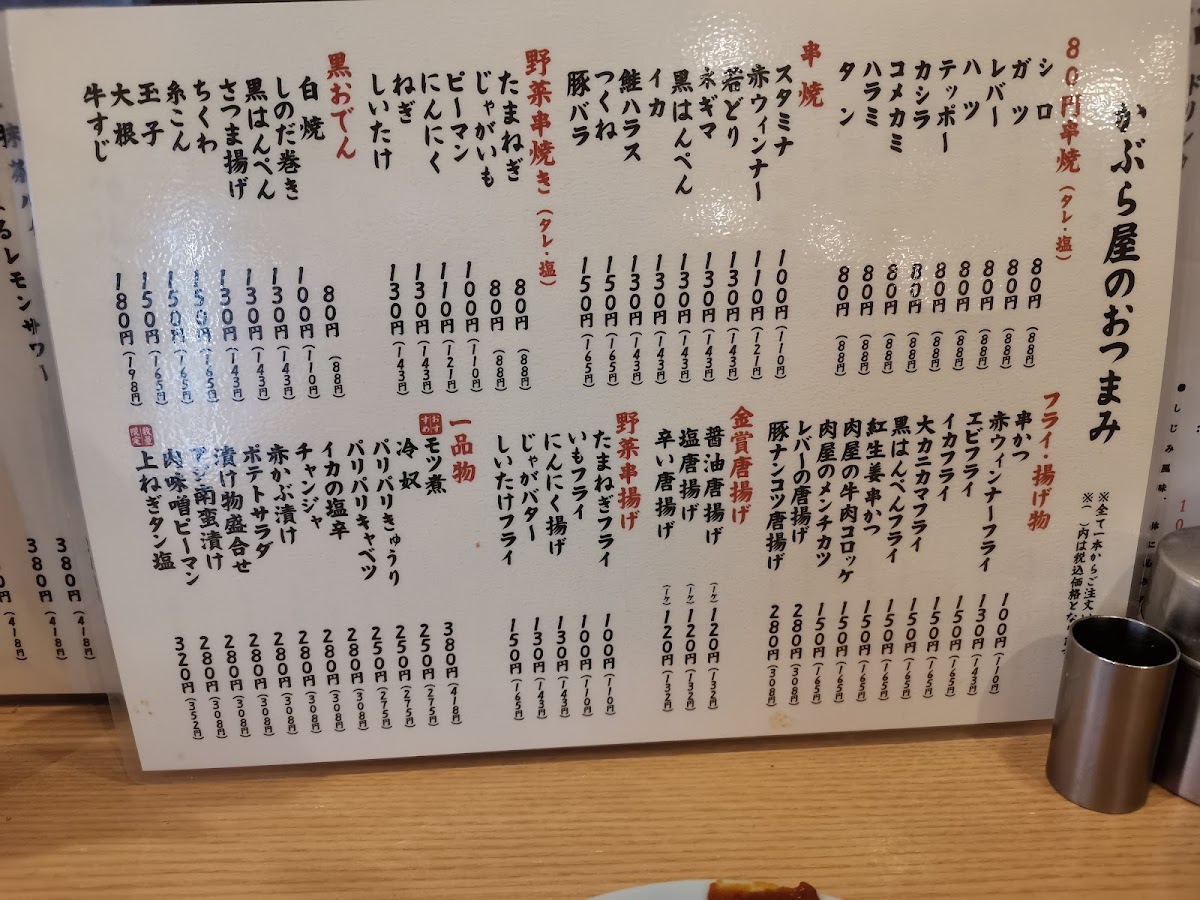 かぶら屋のおつまみ
※全て一本からご注文
※( )内は税込価格とな
80円串焼(タレ・塩)
シロ 80円(88円)
ガツ 80円(88円)
レバー 80円(88円)
ハツ 80円(88円)
テッポー 80円(88円)
カシラ 80円(88円)
コメカミ 80円(88円)
ハラミ 80円(88円)
タン 80円(88円)
串焼
スタミナ 100円(110円)
赤ウィンナー 110円(121円)
若どり 130円(143円)
ネギマ 130円(143円)
黒はんぺん 130円(143円)
イカ 130円(143円)
鮭ハラス 130円(143円)
つくね 150円(165円)
豚バラ 150円(165円)
野菜串焼き(タレ・塩)
たまねぎ 80円(88円)
じゃがいも 80円(88円)
ピーマン 100円(110円)
にんにく 110円(121円)
ねぎ 130円(143円)
しいたけ 130円(143円)
黒おでん
白焼 80円(88円)
しのだ巻き 100円(110円)
黒はんぺん 130円(143円)
さつま揚げ 130円(143円)
ちくわ 130円(143円)
糸こん 150円(165円)
玉子 150円(165円)
大根 150円(165円)
牛すじ 180円(198円)
フライ・揚げ物
串かつ 100円(110円)
赤ウィンナーフライ 130円(143円)
エビフライ 150円(165円)
イカフライ 150円(165円)
大カニカマフライ 150円(165円)
黒はんぺんフライ 150円(165円)
紅生姜串かつ 150円(165円)
肉屋の牛肉コロッケ 150円(165円)
肉屋のメンチカツ 150円(165円)
レバーの唐揚げ 280円(308円)
豚ナンコツ唐揚げ 280円(308円)
金賞唐揚げ
醤油唐揚げ (1ケ)120円(132円)
塩唐揚げ (1ケ)120円(132円)
辛い唐揚げ (1ケ)120円(132円)
野菜串揚げ
たまねぎフライ 100円(110円)
いもフライ 100円(110円)
にんにく揚げ 130円(143円)
じゃがバター 130円(143円)
しいたけフライ 150円(165円)
一品物
おすすめ モツ煮 380円(418円)
冷奴 250円(275円)
パリパリきゅうり 250円(275円)
パリパリキャベツ 250円(275円)
イカの塩辛 280円(308円)
チャンジャ 280円(308円)
赤かぶ漬け 280円(308円)
ポテトサラダ 280円(308円)
漬け物盛合せ 280円(308円)
アジ南蛮漬け 280円(308円)
肉味噌ピーマン 280円(308円)
数量限定 上ねぎタン塩 320円(352円)
●しじみ風味・
レモンサワー
380円(418円)
380円(418円)